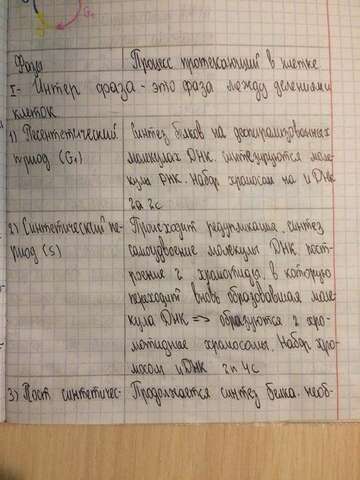 G₁
Фазы Процесс протекающий в клетке
I - Интер фаза - это фаза между делениями
клеток
1) Пресентетический Синтез белков на деспирализованных
период (G₁) молекулах ДНК. синтезируются моле-
кулы РНК. Набор хромосом на и ДНК
2n 2c
2) Синтетический пе- Происходит редупликация. синтез
риод (S) самоудвоение молекулы ДНК. пост-
роение 2 хроматиды, в которую
переходит вновь образовавшая моле-
кула ДНК => образуются 2 хро-
матидные хромосомы. Набор хро-
мосом и ДНК 2n 4c
3) Пост синтетичес- Продолжается синтез белка. необ-